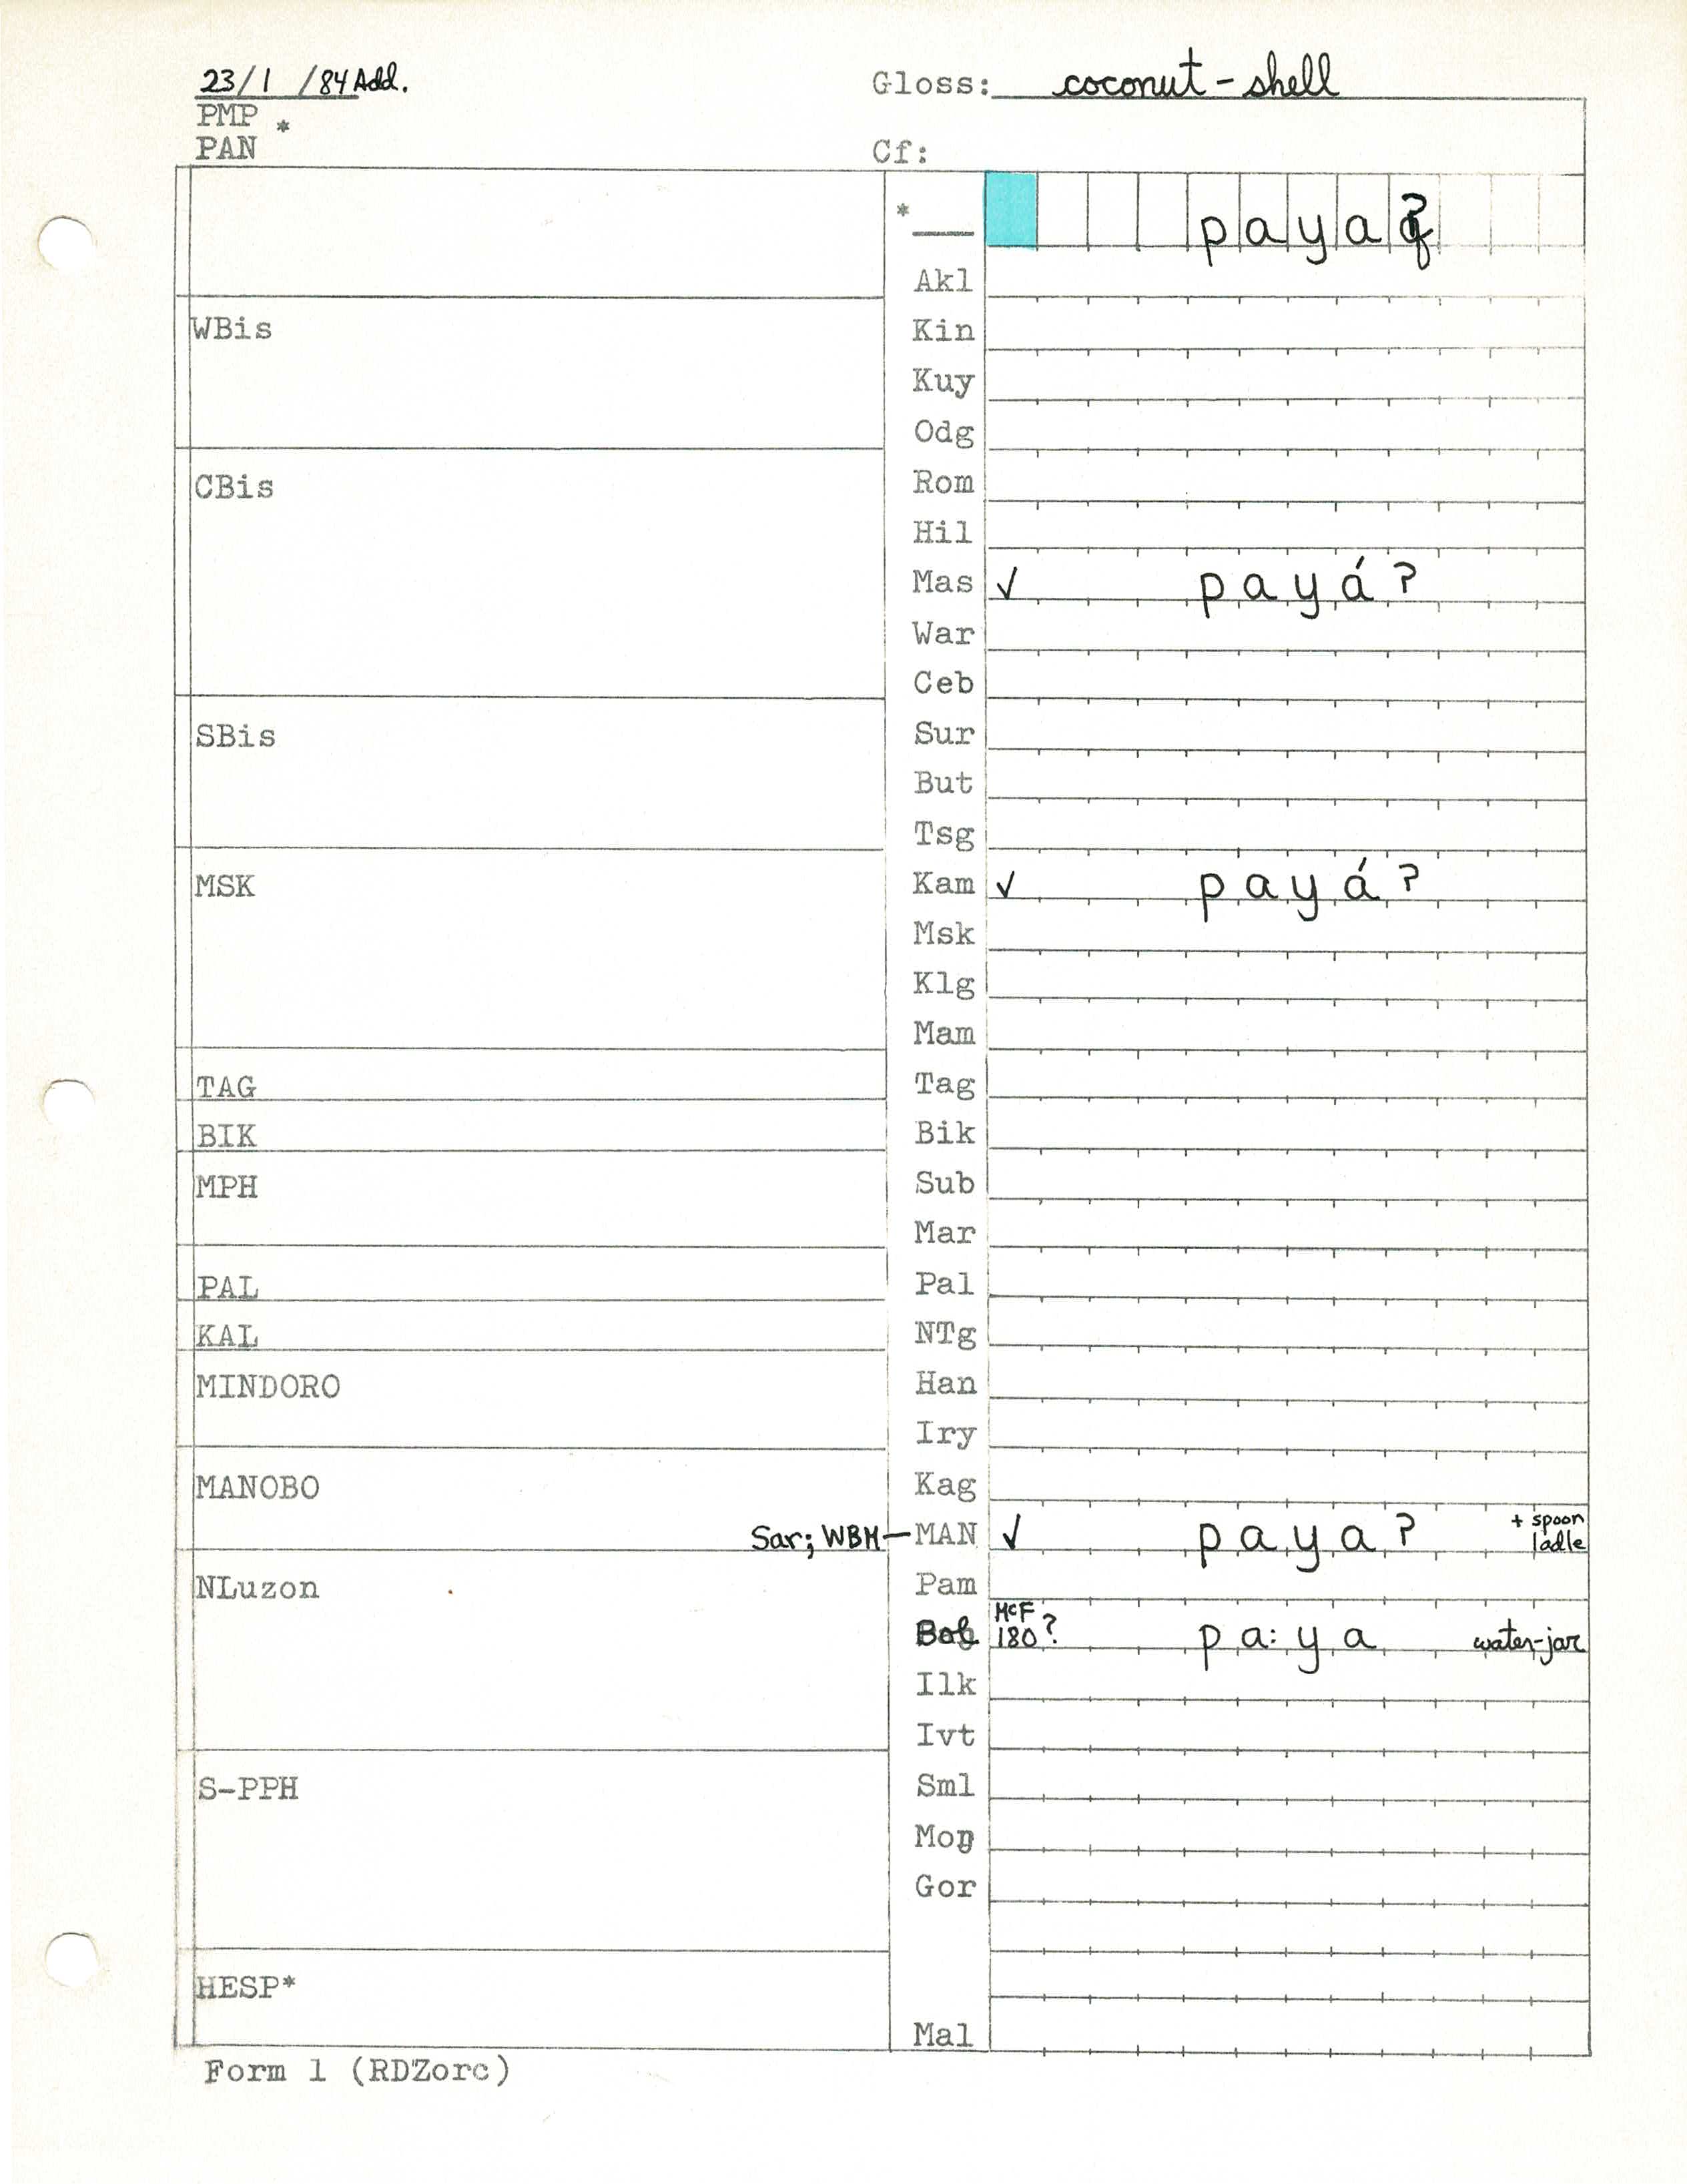 23/1 /84 Add.
Gloss: coconut-shell
PMP *
PAN
Cf:
* payaʔ
Akl
WBis
Kin
Kuy
Odg
CBis
Rom
Hil
Mas ✓ payáʔ
War
Ceb
SBis
Sur
But
Tsg
MSK
Kam ✓ payáʔ
Msk
Klg
Mam
TAG
Tag
BIK
Bik
MPH
Sub
Mar
PAL
Pal
KAL
NTg
MINDORO
Han
Iry
MANOBO
Kag
Sar; WBM — MAN ✓ payaʔ + spoon
ladle
NLuzon
Pam
McF
Bol 180? pa:ya water-jar
Ilk
Ivt
S-PPH
Sml
Moŋ
Gor
HESP*
Mal
Form 1 (RDZorc)